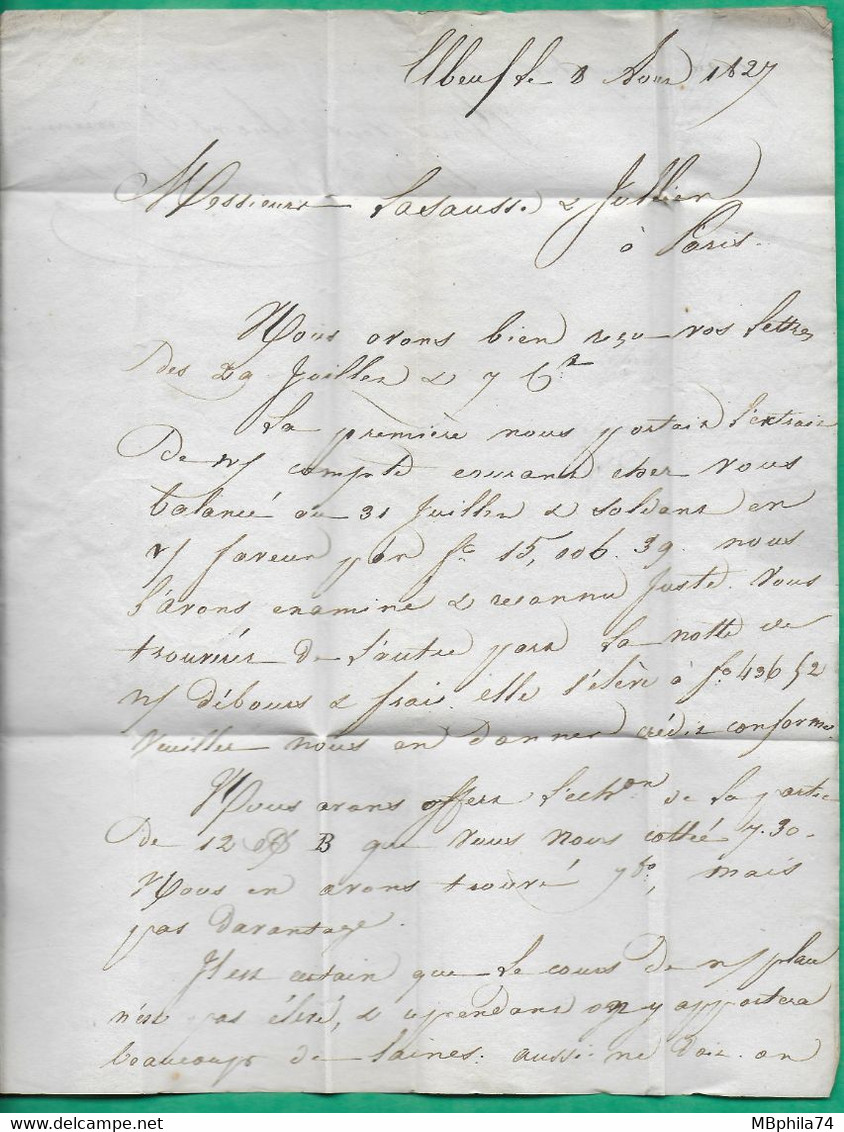 Elbeuf le 8 Aout 1827
Messieurs Lasausse & Jullien
à Paris.
Nous avons bien reçu vos lettres
des 29 Juillet & 7 Ct
La première nous portait l'extrait
de n/ compte courant chez vous
balancé au 31 Juillet & soldant en
n/ faveur par fc 15,006.39. nous
l'avons examiné & reconnu juste. Vous
trouverés de l'autre part la notte de
n/ débours & frais. elle s'élève à fc 436 52
Veuillez nous en donner crédit conforme
Nous avons offert l'echon de la partie
de 12 B que vous nous cottée 7.30.
Nous en avons trouvé 7 fc, mais
pas davantage.
Il est certain que le cours de n/ place
n'est pas élevé, & cependant on y apportera
beaucoup de laines. aussi ne doit on
MBphila74